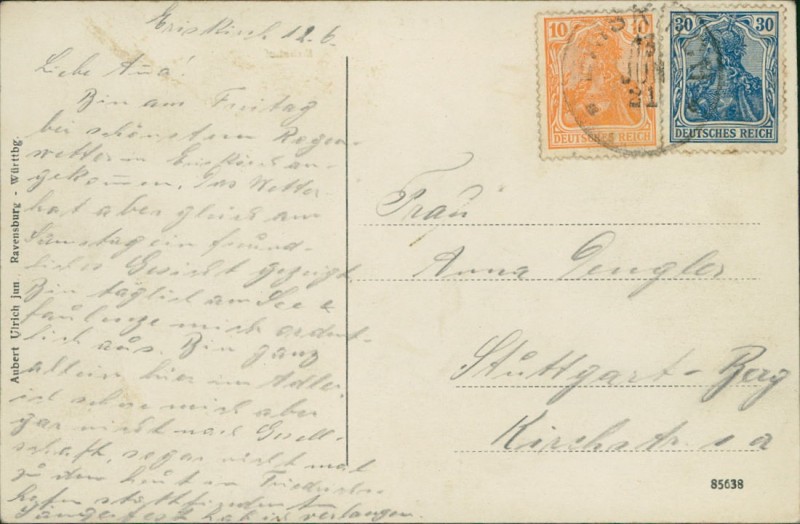 Eriskirch 12.6.
Liebe Anna!
Bin am Freitag
bei schönstem Regen-
wetter in Eriskirch an-
gekommen. Das Wetter
hat aber gleich am
Samstag ein freund-
liches Gesicht gezeigt.
Bin täglich am See &
faulenze mich ordent-
lich aus. Bin ganz
allein hier im Adler,
ich sehne mich aber
gar nicht nach Gesell-
schaft, sogar nicht mal
zu dem heut in Friedrichs-
hafen stattfindenden
Sängerfest hab ich verlangen.
Aubert Ulrich jun., Ravensburg - Württbg.
10 10
DEUTSCHES REICH
30 30
DEUTSCHES REICH
13
JUN
21
Frau
Anna Dengler
Stuttgart-Berg
Kirchstr. 1 a
85638